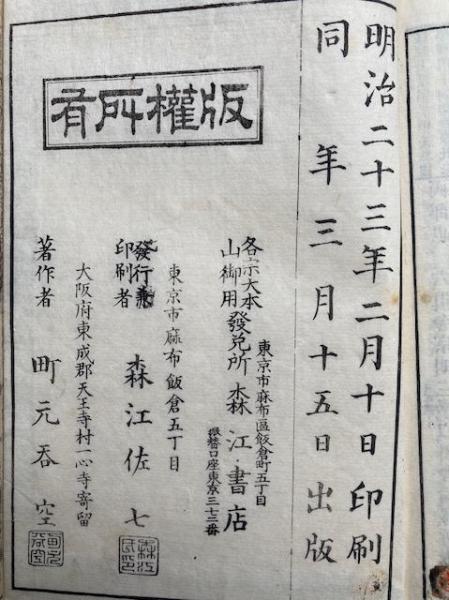 明治二十三年二月十日印刷
同年三月十五日出版
版權所有
東京市麻布區飯倉町五丁目
各宗大本山御用 發兌所 森江書店
振替口座東京三七二番
東京市麻布飯倉五丁目
發行兼印刷者 森江佐七
大阪府東成郡天王寺村一心寺寄留
著作者 町元呑空